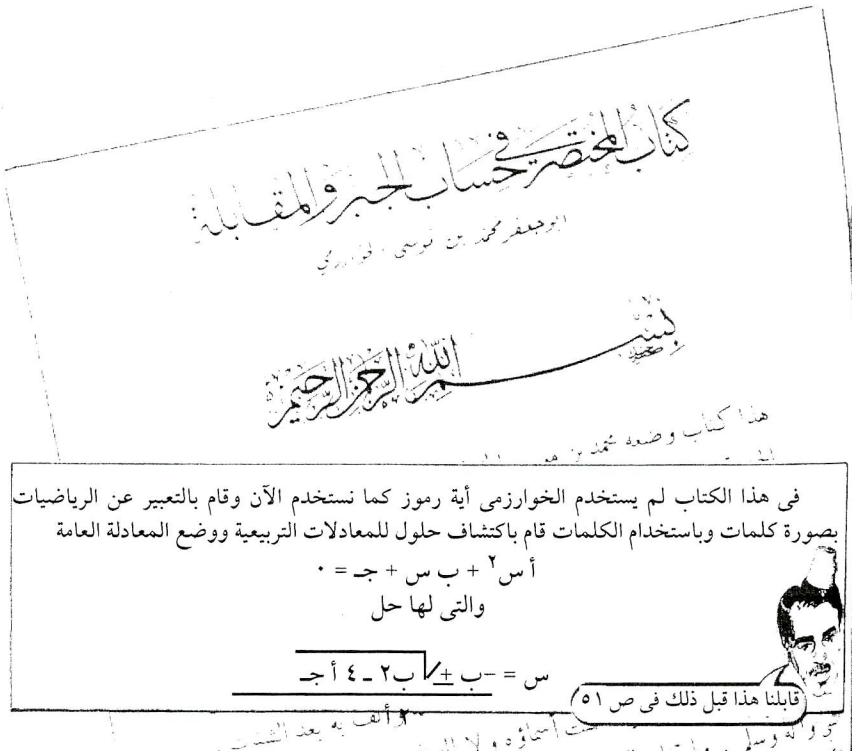 كتاب المختصر في حساب الجبر والمقابلة
ابوجعفر محمد بن موسى الخوارزمي
بسم الله الرحمن الرحيم
هذا كتاب وضعه محمد بن
فى هذا الكتاب لم يستخدم الخوارزمى أية رموز كما نستخدم الآن وقام بالتعبير عن الرياضيات
بصورة كلمات وباستخدام الكلمات قام باكتشاف حلول للمعادلات التربيعية ووضع المعادلة العامة
أ س٢ + ب س + جـ = ٠
والتى لها حل
س = -ب ± √ ب٢ ـ ٤ أ جـ
قابلنا هذا قبل ذلك فى ص ٥١
ألف به بعد الشتات
أسماؤه و لا